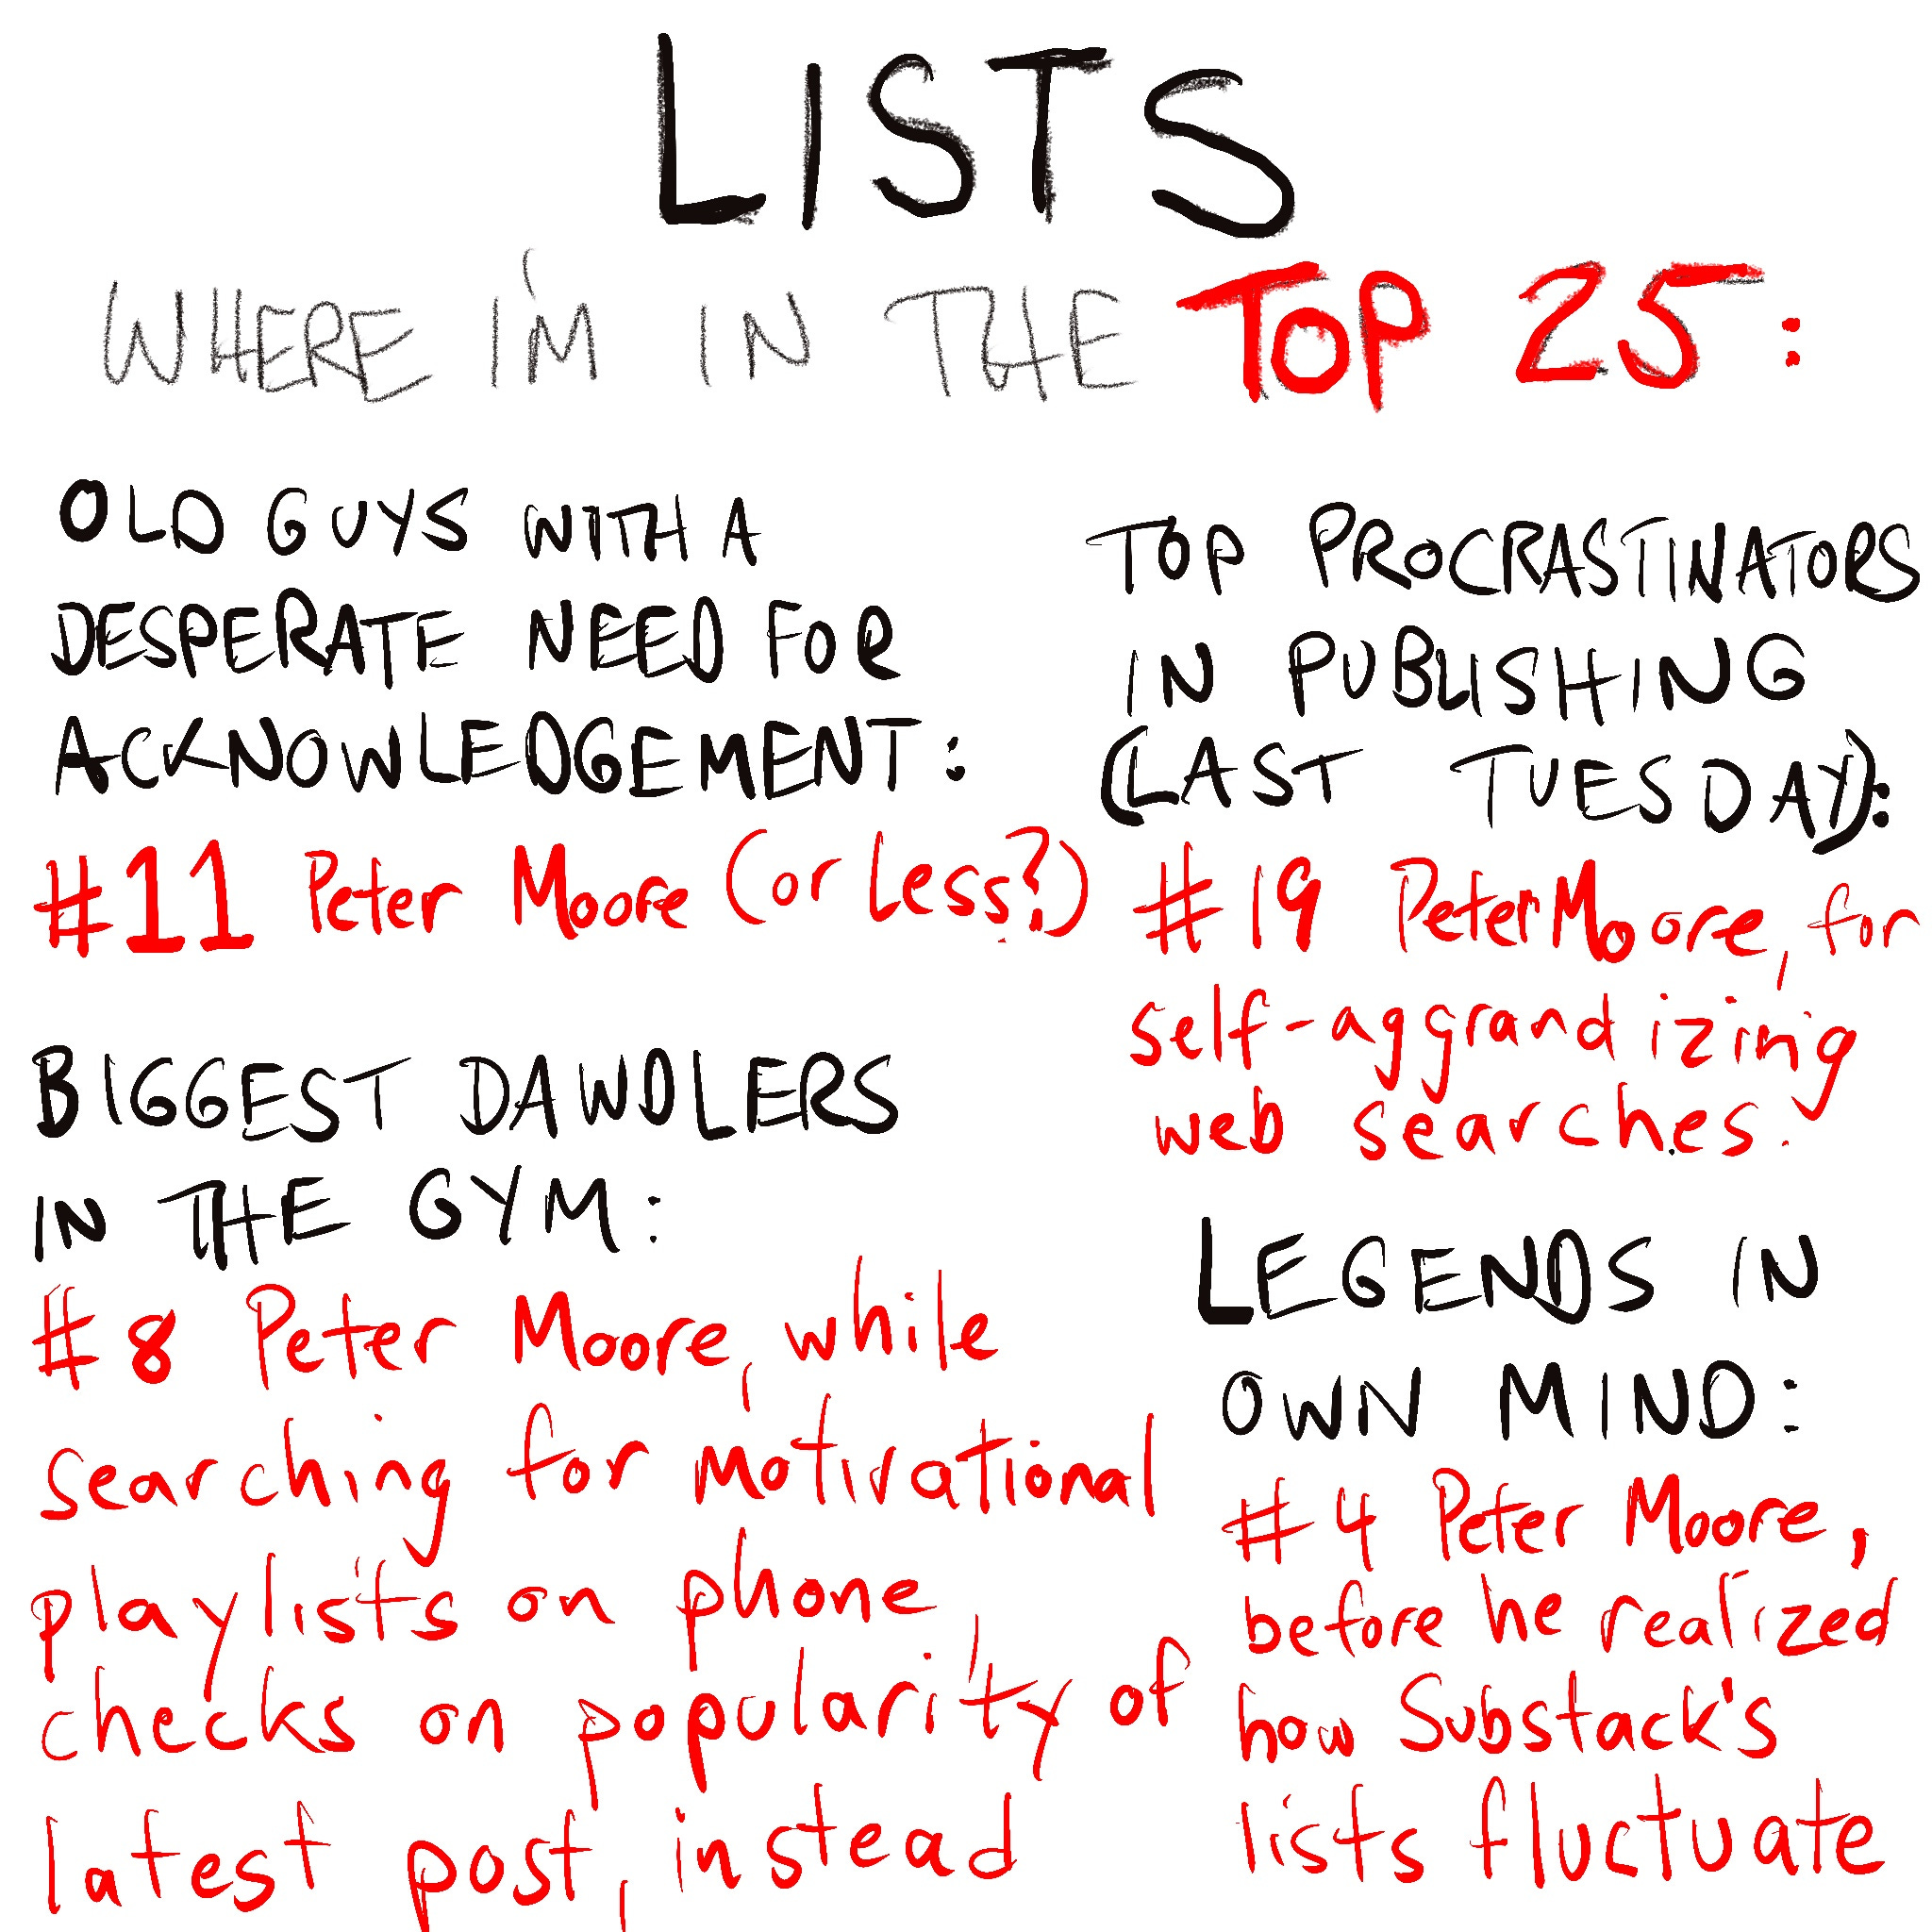 LISTS
WHERE I'M IN THE TOP 25:
OLD GUYS WITH A
DESPERATE NEED FOR
ACKNOWLEDGEMENT:
#11 Peter Moore (or Less?)
BIGGEST DAWDLERS
IN THE GYM:
#8 Peter Moore, while
searching for motivational
playlists on phone,
checks on popularity of
latest post, instead
TOP PROCRASTINATORS
IN PUBLISHING
(LAST TUESDAY):
#19 Peter Moore, for
self-aggrandizing
web searches.
LEGENDS IN
OWN MIND:
#4 Peter Moore,
before he realized
how Substack's
lists fluctuate